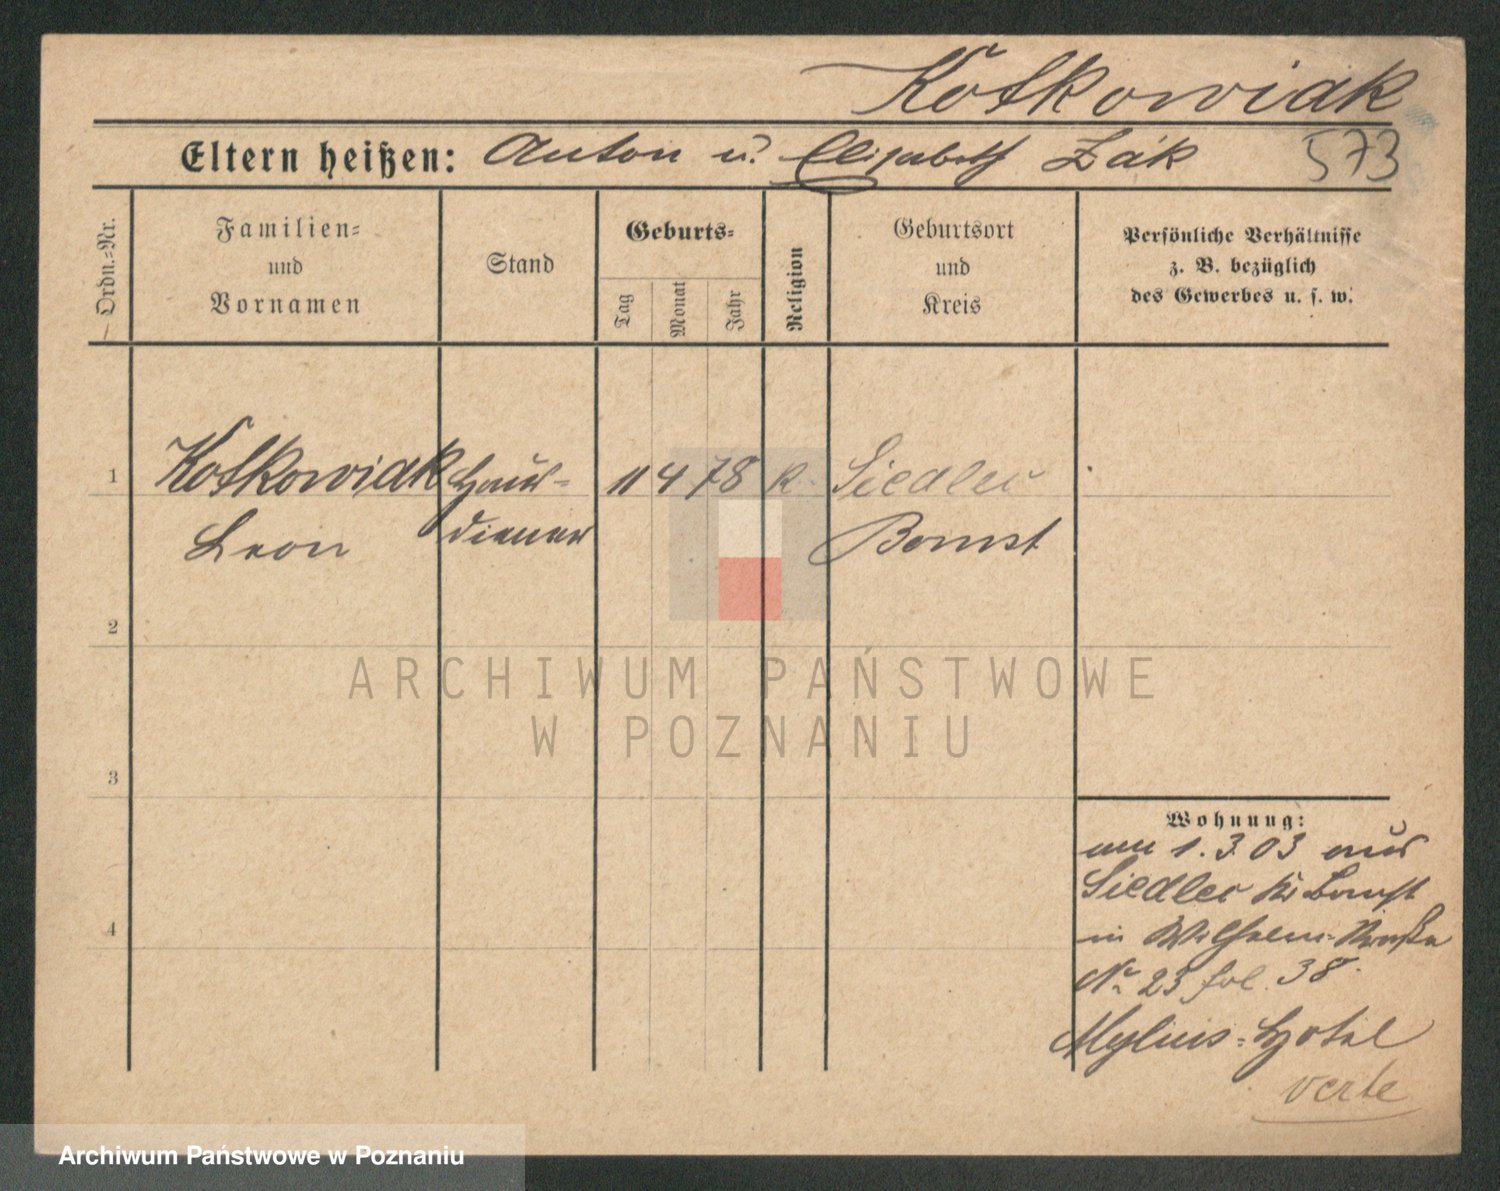 Kotkowiak
Eltern heißen: Anton u. Elisabeth Żak 573
Ordn.-Nr.
Familien- und Vornamen
Stand
Geburts-
Tag
Monat
Jahr
Religion
Geburtsort und Kreis
Persönliche Verhältnisse
z. B. bezüglich
des Gewerbes u. s. w.
1 Kotkowiak Haus- 11 4 78 k. Siedlec
Leon diener Bomst
2
3
4
Wohnung:
am 1.3.03 aus
Siedlec Kr Bomst
in Wilhelm-Straße
No 23 fol. 38
Mylius-Hotel
verte
ARCHIWUM PAŃSTWOWE
W POZNANIU
Archiwum Państwowe w Poznaniu